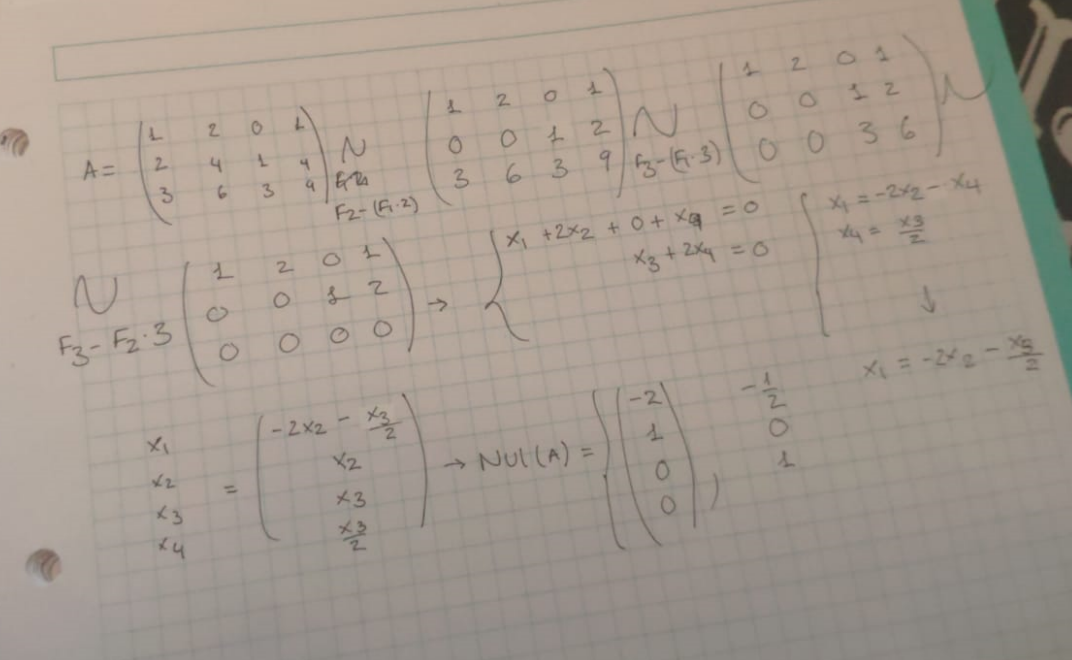 A = (1 2 0 1 / 2 4 1 4 / 3 6 3 9) N F2-(F1·2) (1 2 0 1 / 0 0 1 2 / 3 6 3 9) N F3-(F1·3) (1 2 0 1 / 0 0 1 2 / 0 0 3 6) N
N F3-F2·3 (1 2 0 1 / 0 0 1 2 / 0 0 0 0) → { x1 + 2x2 + 0 + x4 = 0 / x3 + 2x4 = 0 { x1 = -2x2 - x4 / x4 = x3/2
↓
x1 = -2x2 - x3/2
x1 x2 x3 x4 = (-2x2 - x3/2 / x2 / x3 / x3/2) → NUL(A) = { (-2 / 1 / 0 / 0), -1/2 / 0 / 1